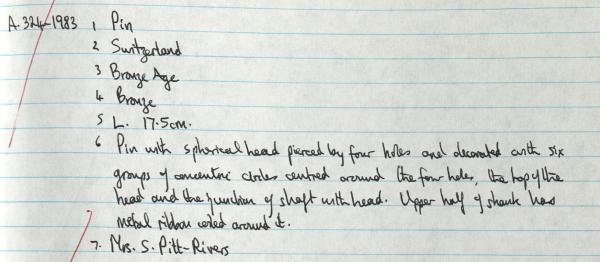 A.324-1983 1 Pin
2 Switzerland
3 Bronze Age
4 Bronze
5 L. 17.5cm.
6 Pin with spherical head pierced by four holes and decorated with six
groups of concentric circles centred around the four holes, the top of the
head and the junction of shaft with head. Upper half of shank has
metal ribbon coiled around it.
7. Mrs. S. Pitt-Rivers